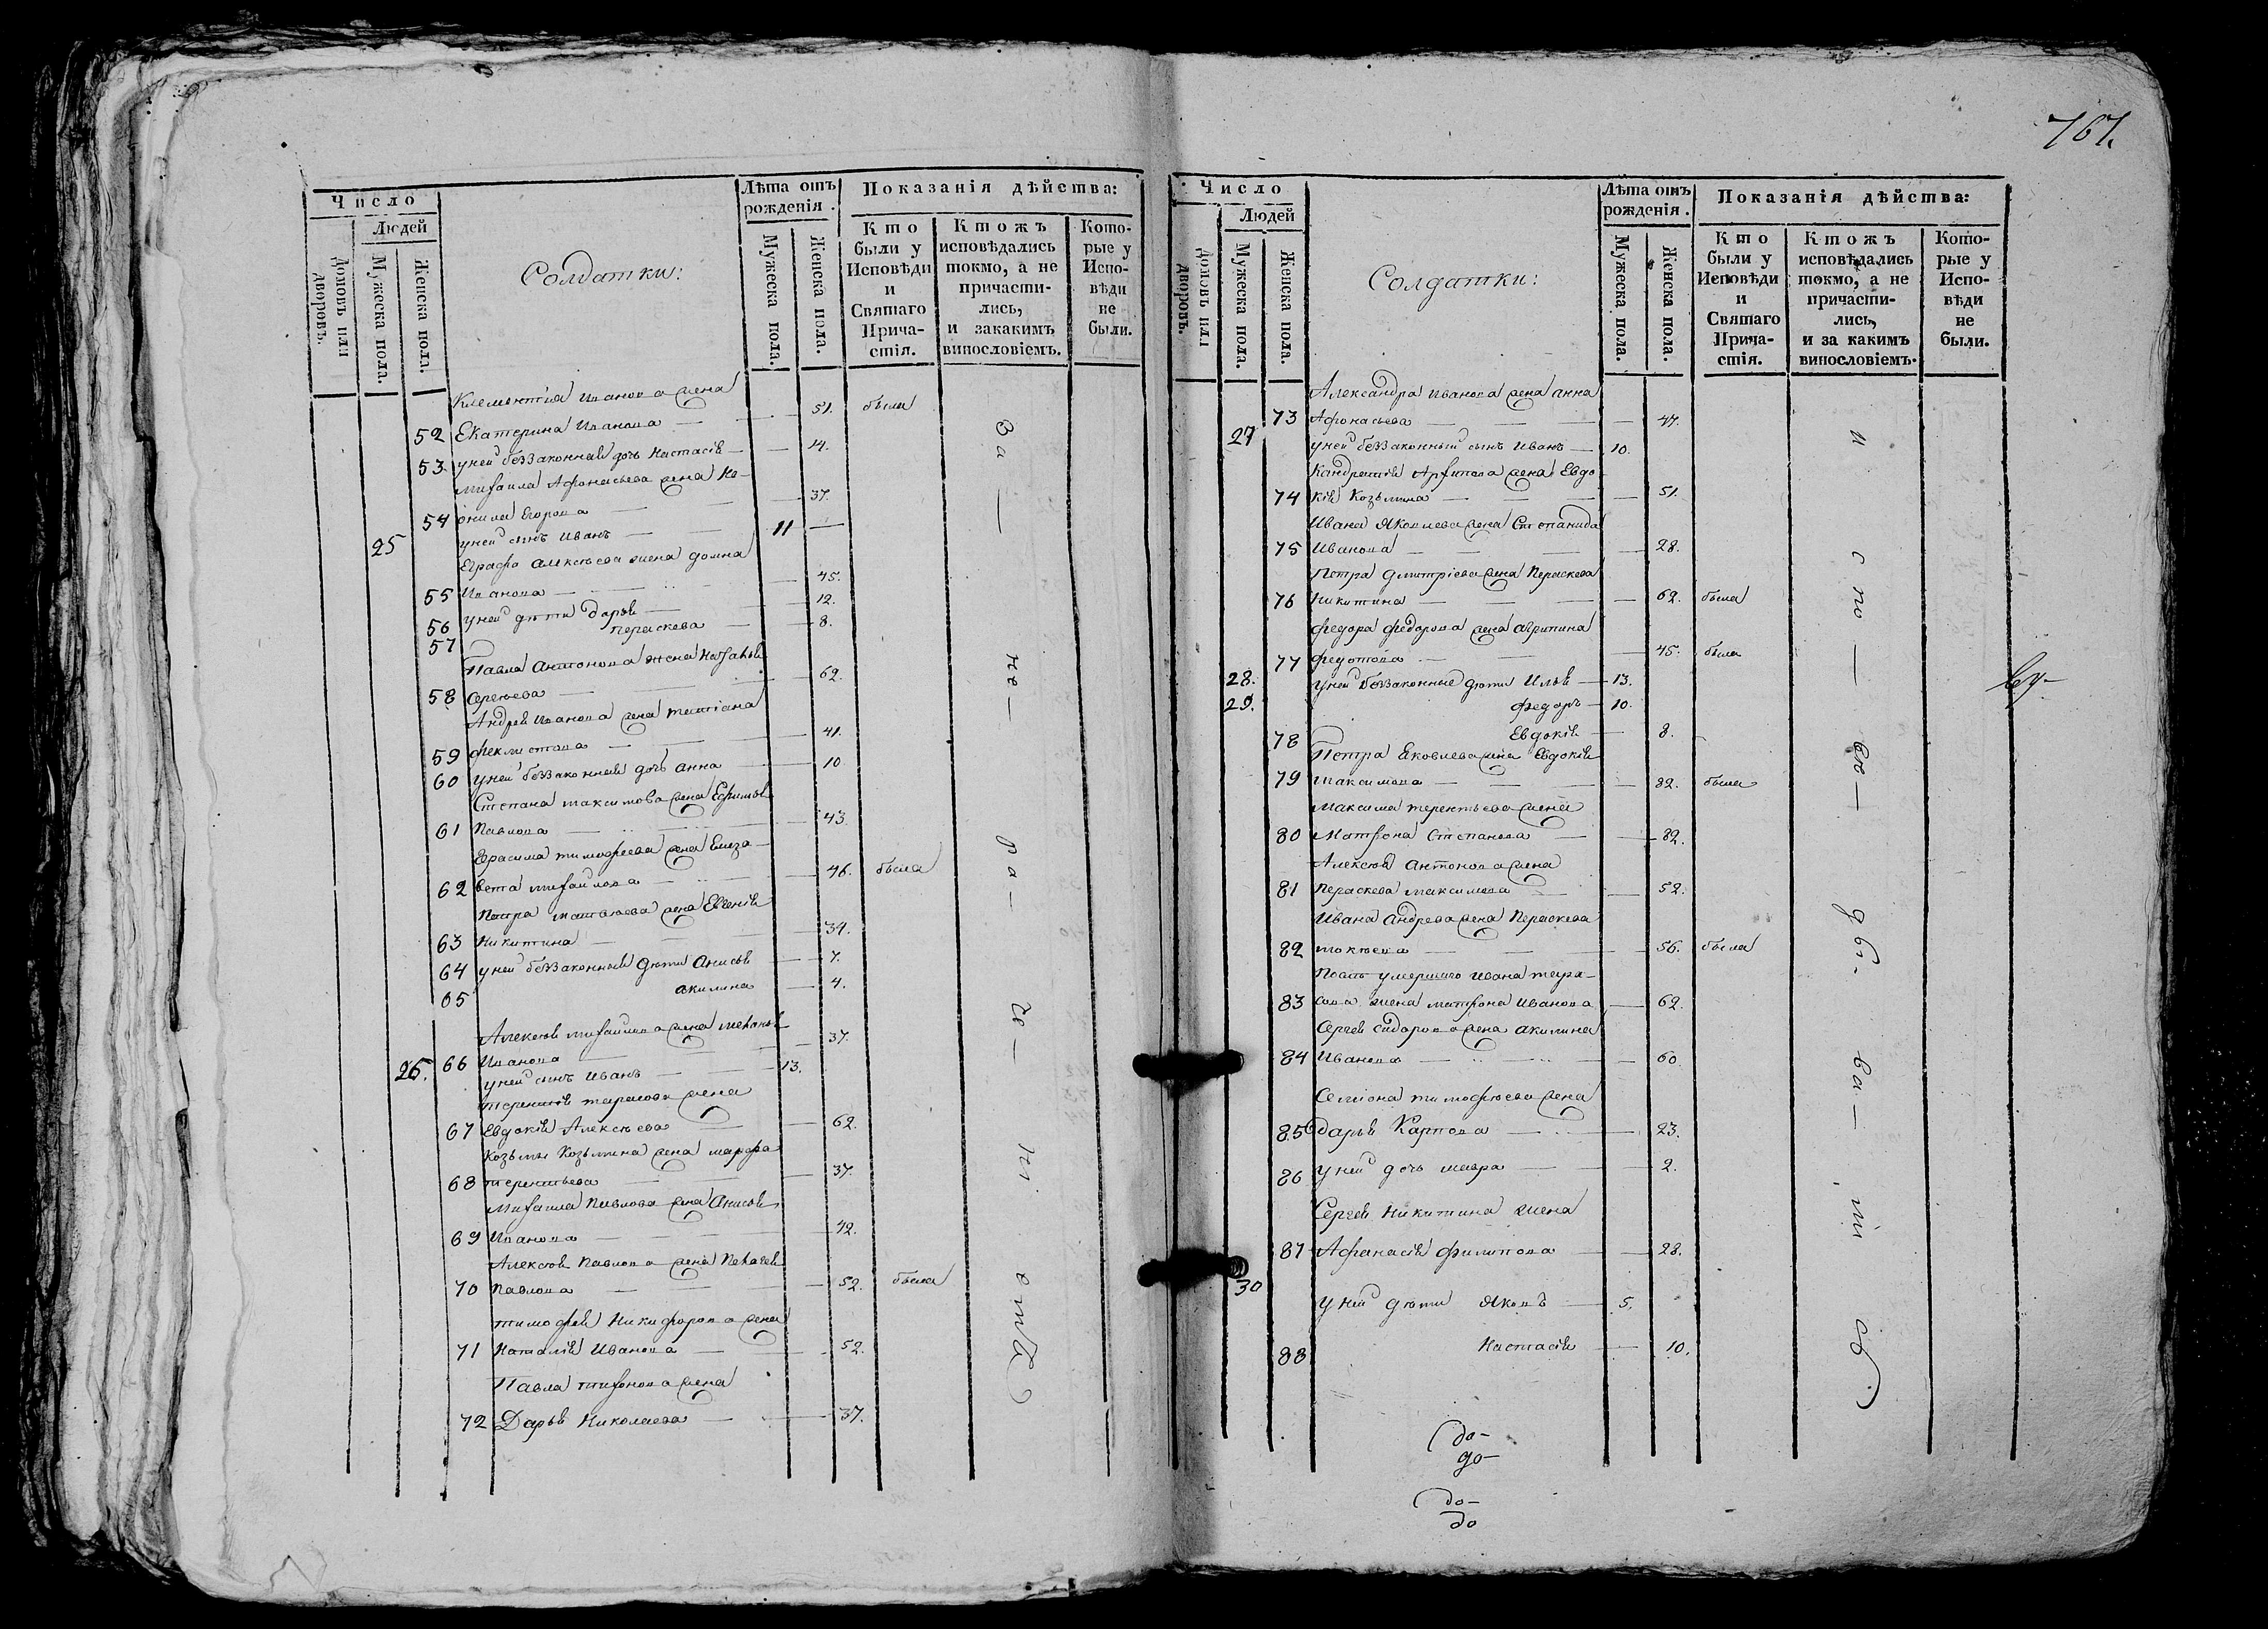 767.
Число
Людей
домовъ или дворовъ.
Мужеска пола.
Женска пола.
Солдатки:
Лѣта отъ рожденія.
Мужеска пола.
Женска пола.
Показанія дѣйства:
Кто были у Исповѣди и Святаго Прича-стія.
Ктожъ исповѣдались токмо, а не причасти-лись, и закакимъ винословіемъ.
Кото-рые у Испо-вѣди не были.
Климентія Иванова жена
52 Екатерина Иванова — 51. была
53. уней беззаконная дочь Настасія — 14.
Михаила Афонасьева жена Не-
54 онила Егорова — 37.
25 уней сынъ Иванъ — 11
Еграфа Алексѣева жена домна
55 Иванова — 45.
56 уней дѣти Дарья — 12.
57 Пераскева — 8.
Павла Антонова жена Наталья
58 Сергѣева — 62.
Андрея Иванова жена татіана
59 феклистова — 41.
60 уней беззаконная дочь анна — 10
Степана максимова жена Ефимья
61 Павлова — 43.
Герасима тимофеева жена Елиза-
62 вета михайлова — 46. была
Петра матвѣева жена Евгенія
63 Никитина — 39.
64 уней беззаконныя дѣти Анисья — 7.
65 акилина — 4.
Алексѣя михайлова жена меланья
66 Иванова — 37.
26. уней сынъ Иванъ — 13.
терентія тарасова жена
67 Евдокія Алексѣева — 62.
Козьмы Козьмина жена марфа
68 терентьева — 37.
Михаила Павлова жена Анисья
69 Иванова — 42.
Алексѣя Павлова жена Пелагея
70 Павлова — 52. была
тимофея Никифорова жена
71 Наталія Иванова — 52.
Павла тихонова жена
72 Дарья Николаева — 37.
За — не — ра — че — ні емъ
Число
Людей
домовъ или дворовъ.
Мужеска пола.
Женска пола.
Солдатки:
Лѣта отъ рожденія.
Мужеска пола.
Женска пола.
Показанія дѣйства:
Кто были у Исповѣди и Святаго Прича-стія.
Ктожъ исповѣдались токмо, а не причасти-лись, и за какимъ винословіемъ.
Кото-рые у Испо-вѣди не были.
Александра Иванова жена анна
73 Афонасьева — 47.
27 уней беззаконный сынъ Иванъ — 10.
Кандратія Архипова жена Евдо-
74 кія Козьмина — 51.
Ивана Яковлева жена Степанида
75 Иванова — 28.
Петра дмитріева жена Пераскева
76 Никитина — 62. была
федора федорова жена агрипина
77 федотова — 45. была
28. уней беззаконные дѣти Илья — 13.
29. федоръ — 10.
78 Евдокія — 8.
Петра Яковлева жена Евдокія
79 максимова — 82. была
максима терентьева жена
80 Матрона Степанова — 82.
Алексѣя антонова жена
81 Пераскева максимова — 52.
Ивана андреева жена Пераскева
82 мокѣева — 56. была
Послѣ умершаго Ивана тара-
83 сова жена матрона Иванова — 62.
Сергея сидорова жена акилина
84 Иванова — 60.
Семіона тимофѣева жена
85 дарья Карпова — 23.
86 уней дочь мавра — 2.
Сергея Никитина жена
87 Афанасія филипова — 28.
30 уней дѣти Яковъ — 5.
88 Настасія — 10.
и спо — вѣ — дыва — лись